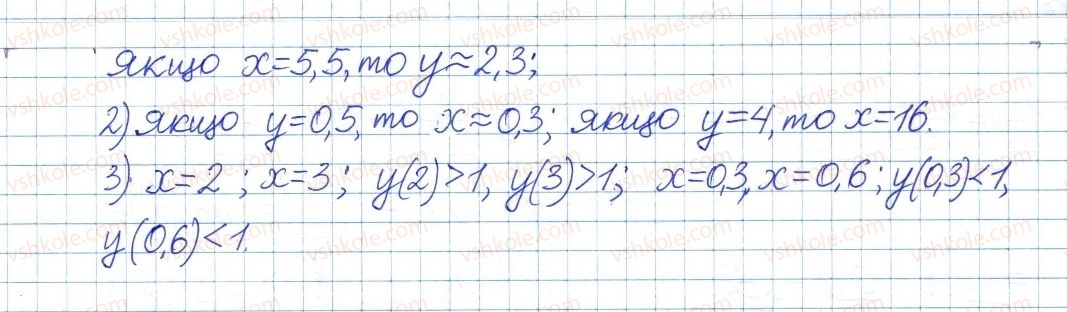 якщо x=5,5, то y≈2,3;
2) якщо y=0,5, то x≈0,3; якщо y=4, то x=16.
3) x=2; x=3; y(2)>1, y(3)>1; x=0,3, x=0,6; y(0,3)<1,
y(0,6)<1.